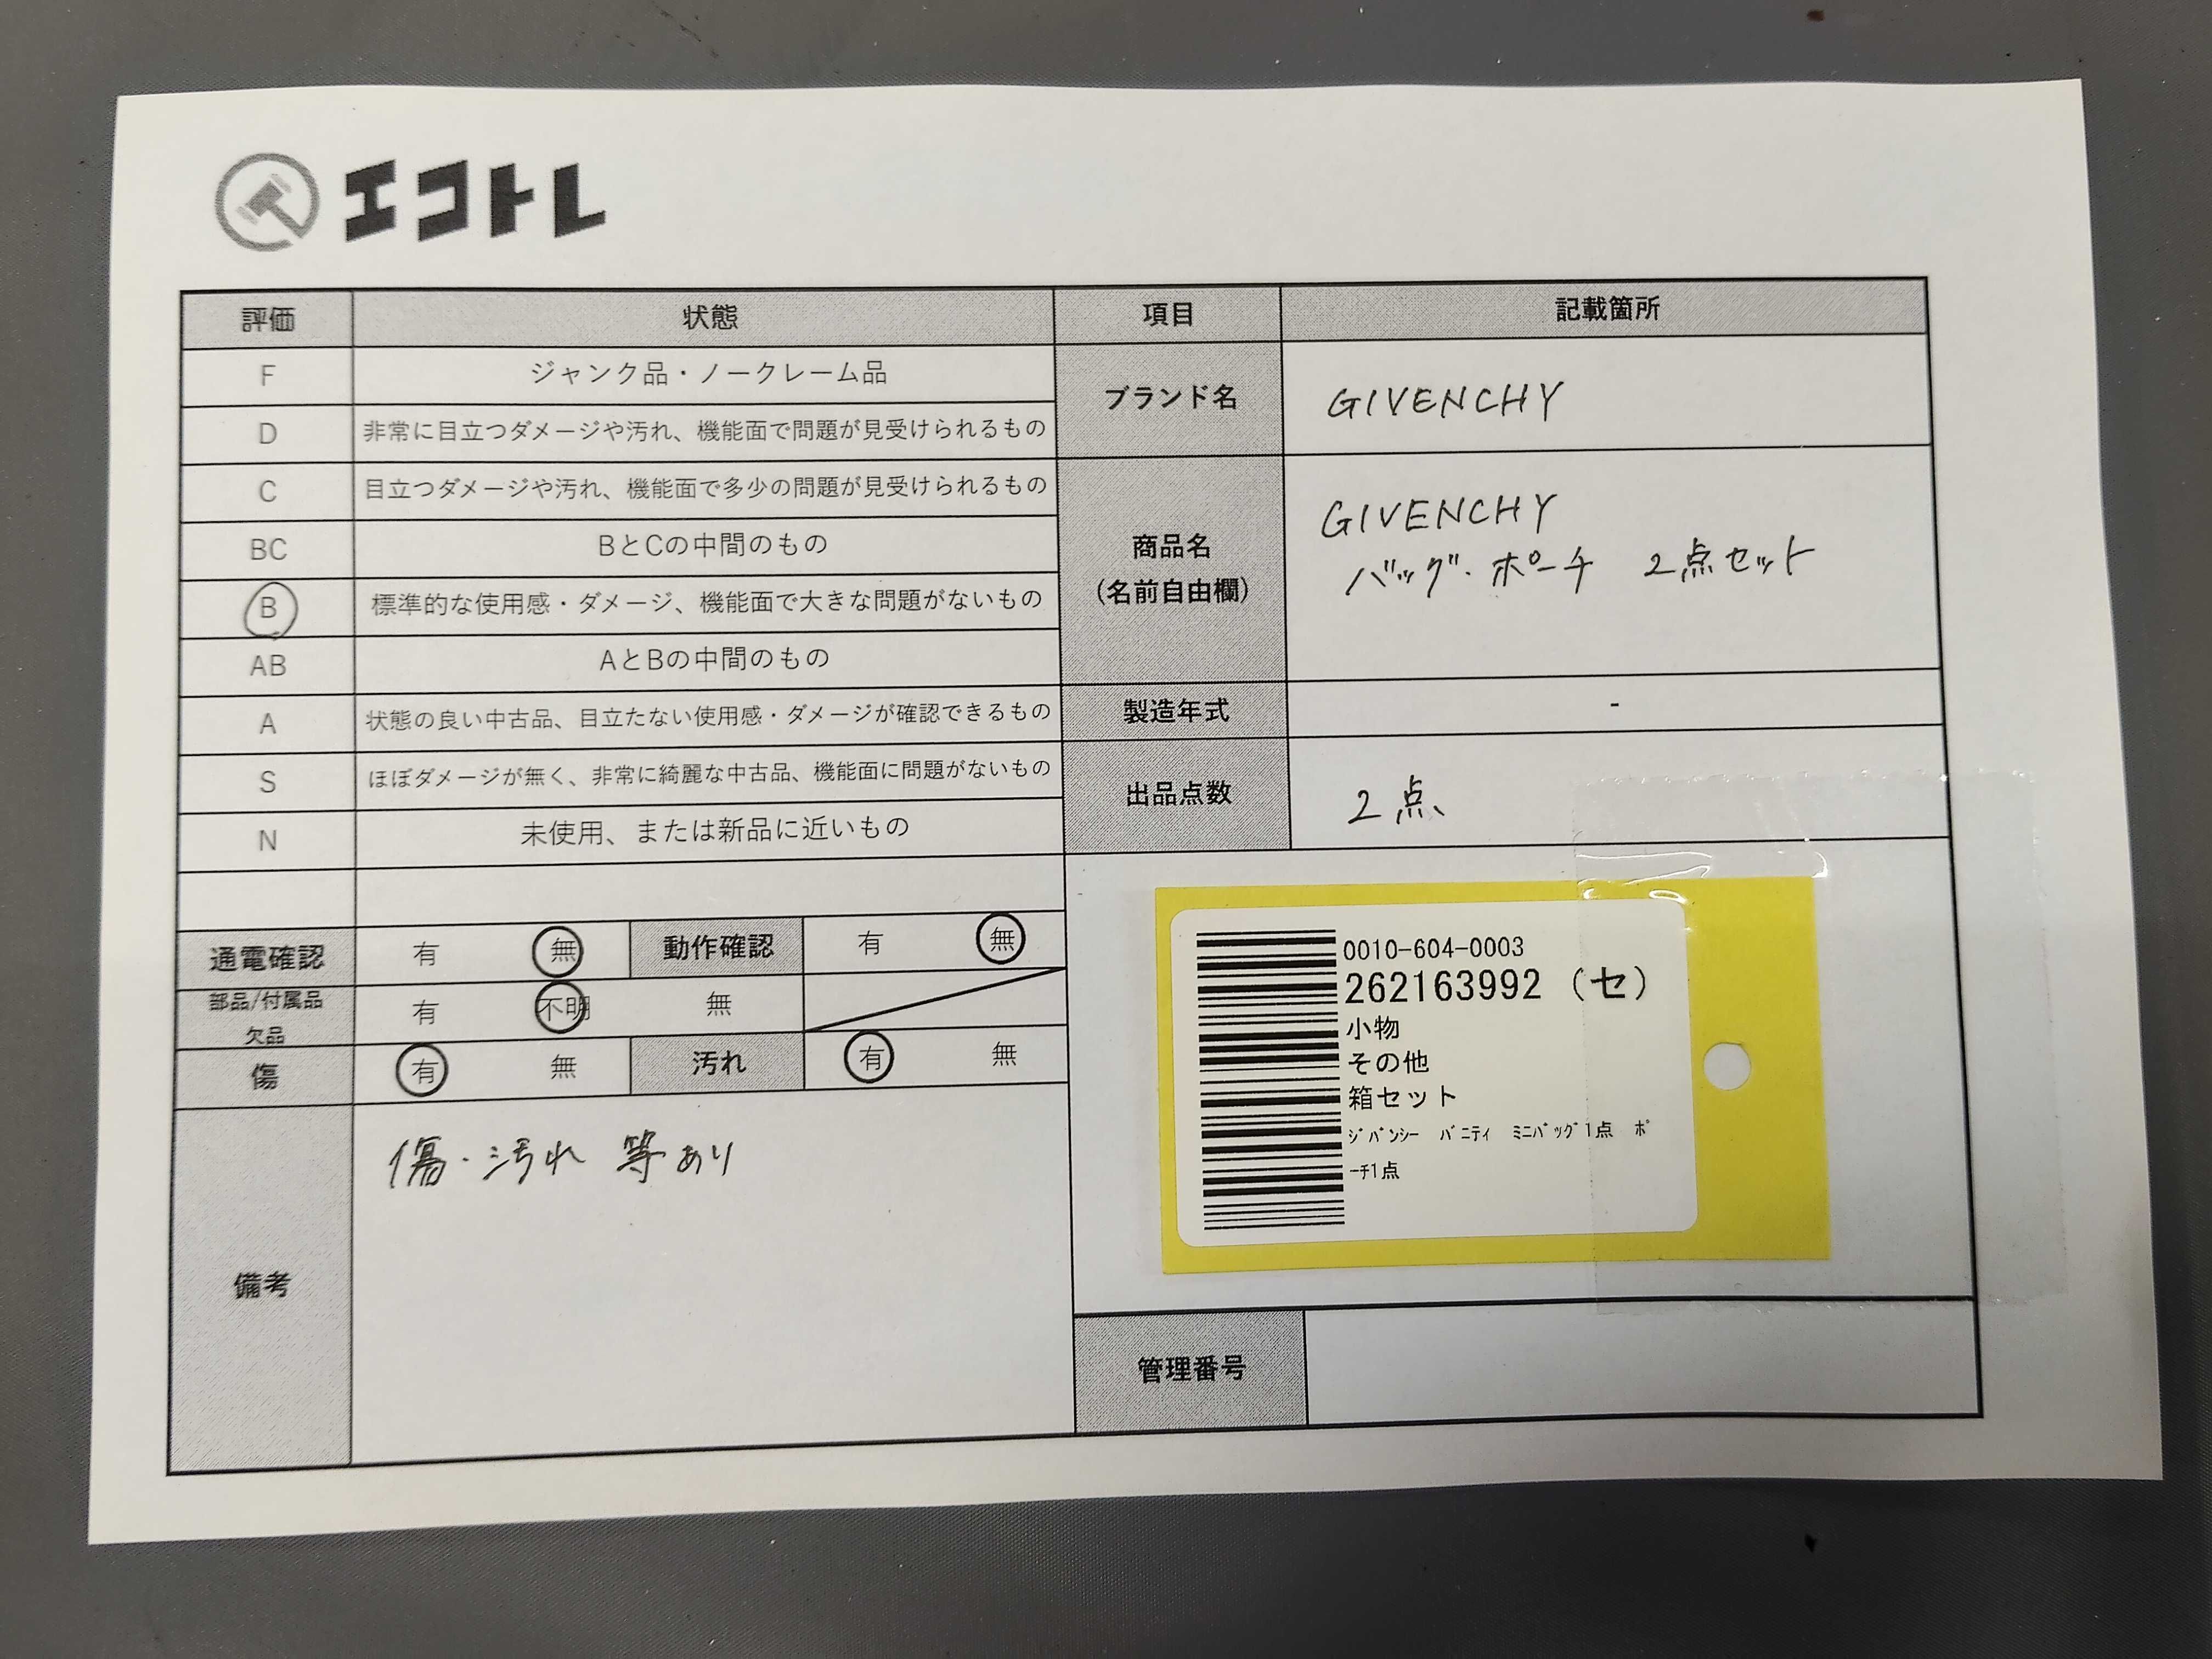 エコトレ
評価 状態 項目 記載箇所
F ジャンク品・ノークレーム品
D 非常に目立つダメージや汚れ、機能面で問題が見受けられるもの
ブランド名 GIVENCHY
C 目立つダメージや汚れ、機能面で多少の問題が見受けられるもの
BC BとCの中間のもの
B 標準的な使用感・ダメージ、機能面で大きな問題がないもの
AB AとBの中間のもの
商品名
(名前自由欄)
GIVENCHY
バッグ・ポーチ 2点セット
A 状態の良い中古品、目立たない使用感・ダメージが確認できるもの
製造年式 -
S ほぼダメージが無く、非常に綺麗な中古品、機能面に問題がないもの
N 未使用、または新品に近いもの
出品点数 2点
通電確認 有 無 動作確認 有 無
部品/付属品
欠品
有 不明 無
傷 有 無 汚れ 有 無
備考
傷・汚れ 等あり
0010-604-0003
262163992 (セ)
小物
その他
箱セット
ｼﾞﾊﾞﾝｼｰ ﾊﾞﾆﾃｨ ﾐﾆﾊﾞｯｸﾞ1点 ﾎﾟ
ｰﾁ1点
管理番号